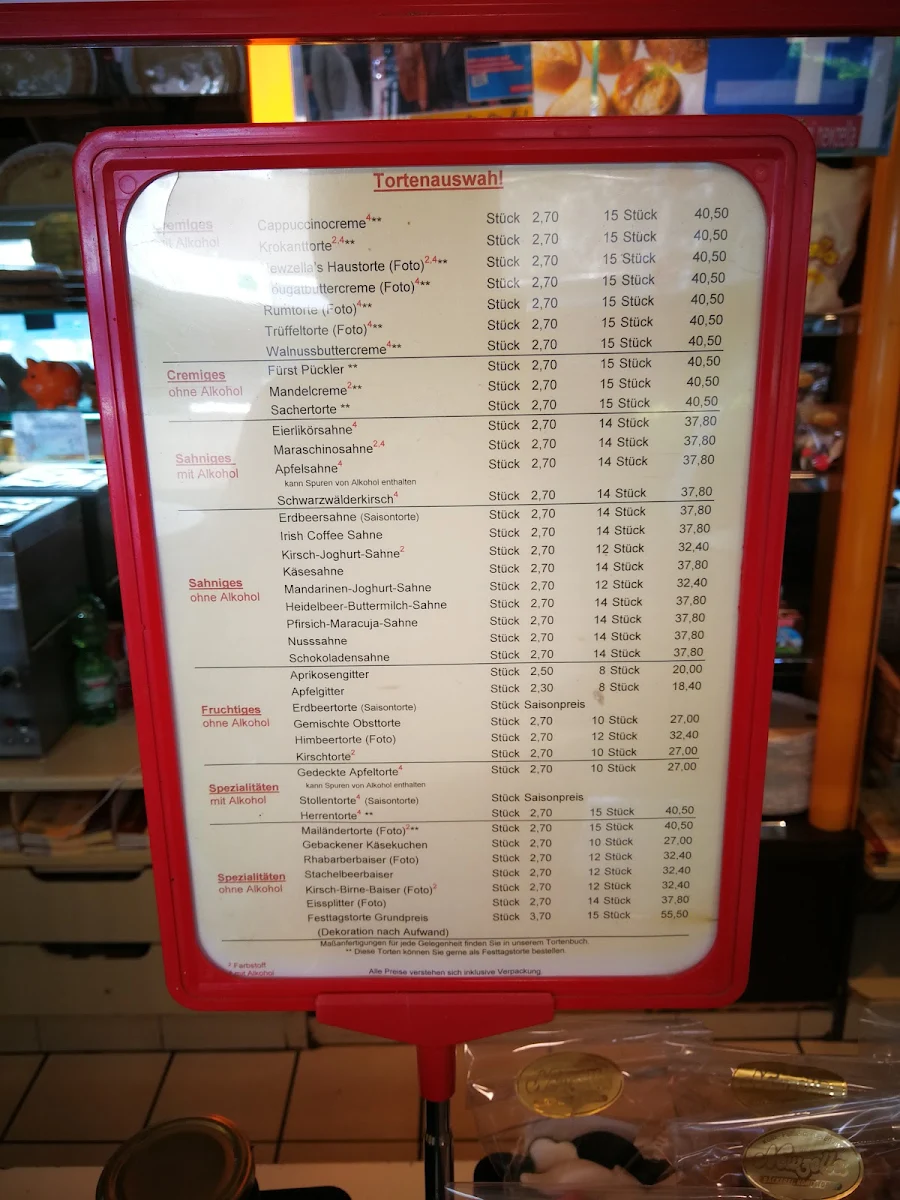 Tortenauswahl!
Cremiges Cappuccinocreme4** Stück 2,70 15 Stück 40,50
mit Alkohol Krokanttorte2,4** Stück 2,70 15 Stück 40,50
Newzella's Haustorte (Foto)2,4** Stück 2,70 15 Stück 40,50
Nougatbuttercreme (Foto)4** Stück 2,70 15 Stück 40,50
Rumtorte (Foto)4** Stück 2,70 15 Stück 40,50
Trüffeltorte (Foto)4** Stück 2,70 15 Stück 40,50
Walnussbuttercreme4** Stück 2,70 15 Stück 40,50
Cremiges Fürst Pückler ** Stück 2,70 15 Stück 40,50
ohne Alkohol Mandelcreme2** Stück 2,70 15 Stück 40,50
Sachertorte ** Stück 2,70 15 Stück 40,50
Eierlikörsahne4 Stück 2,70 14 Stück 37,80
Sahniges Maraschinosahne2,4 Stück 2,70 14 Stück 37,80
mit Alkohol Apfelsahne4 Stück 2,70 14 Stück 37,80
kann Spuren von Alkohol enthalten
Schwarzwälderkirsch4 Stück 2,70 14 Stück 37,80
Erdbeersahne (Saisontorte) Stück 2,70 14 Stück 37,80
Irish Coffee Sahne Stück 2,70 14 Stück 37,80
Kirsch-Joghurt-Sahne2 Stück 2,70 12 Stück 32,40
Käsesahne Stück 2,70 14 Stück 37,80
Sahniges Mandarinen-Joghurt-Sahne Stück 2,70 12 Stück 32,40
ohne Alkohol Heidelbeer-Buttermilch-Sahne Stück 2,70 14 Stück 37,80
Pfirsich-Maracuja-Sahne Stück 2,70 14 Stück 37,80
Nusssahne Stück 2,70 14 Stück 37,80
Schokoladensahne Stück 2,70 14 Stück 37,80
Aprikosengitter Stück 2,50 8 Stück 20,00
Apfelgitter Stück 2,30 8 Stück 18,40
Fruchtiges Erdbeertorte (Saisontorte) Stück Saisonpreis
ohne Alkohol Gemischte Obsttorte Stück 2,70 10 Stück 27,00
Himbeertorte (Foto) Stück 2,70 12 Stück 32,40
Kirschtorte2 Stück 2,70 10 Stück 27,00
Gedeckte Apfeltorte4 Stück 2,70 10 Stück 27,00
Spezialitäten kann Spuren von Alkohol enthalten
mit Alkohol Stollentorte4 (Saisontorte) Stück Saisonpreis
Herrentorte4 ** Stück 2,70 15 Stück 40,50
Mailändertorte (Foto)2** Stück 2,70 15 Stück 40,50
Gebackener Käsekuchen Stück 2,70 10 Stück 27,00
Rhabarberbaiser (Foto) Stück 2,70 12 Stück 32,40
Spezialitäten Stachelbeerbaiser Stück 2,70 12 Stück 32,40
ohne Alkohol Kirsch-Birne-Baiser (Foto)2 Stück 2,70 12 Stück 32,40
Eissplitter (Foto) Stück 2,70 14 Stück 37,80
Festtagstorte Grundpreis Stück 3,70 15 Stück 55,50
(Dekoration nach Aufwand)
Maßanfertigungen für jede Gelegenheit finden Sie in unserem Tortenbuch.
** Diese Torten können Sie gerne als Festtagstorte bestellen.
2 Farbstoff
4 mit Alkohol Alle Preise verstehen sich inklusive Verpackung